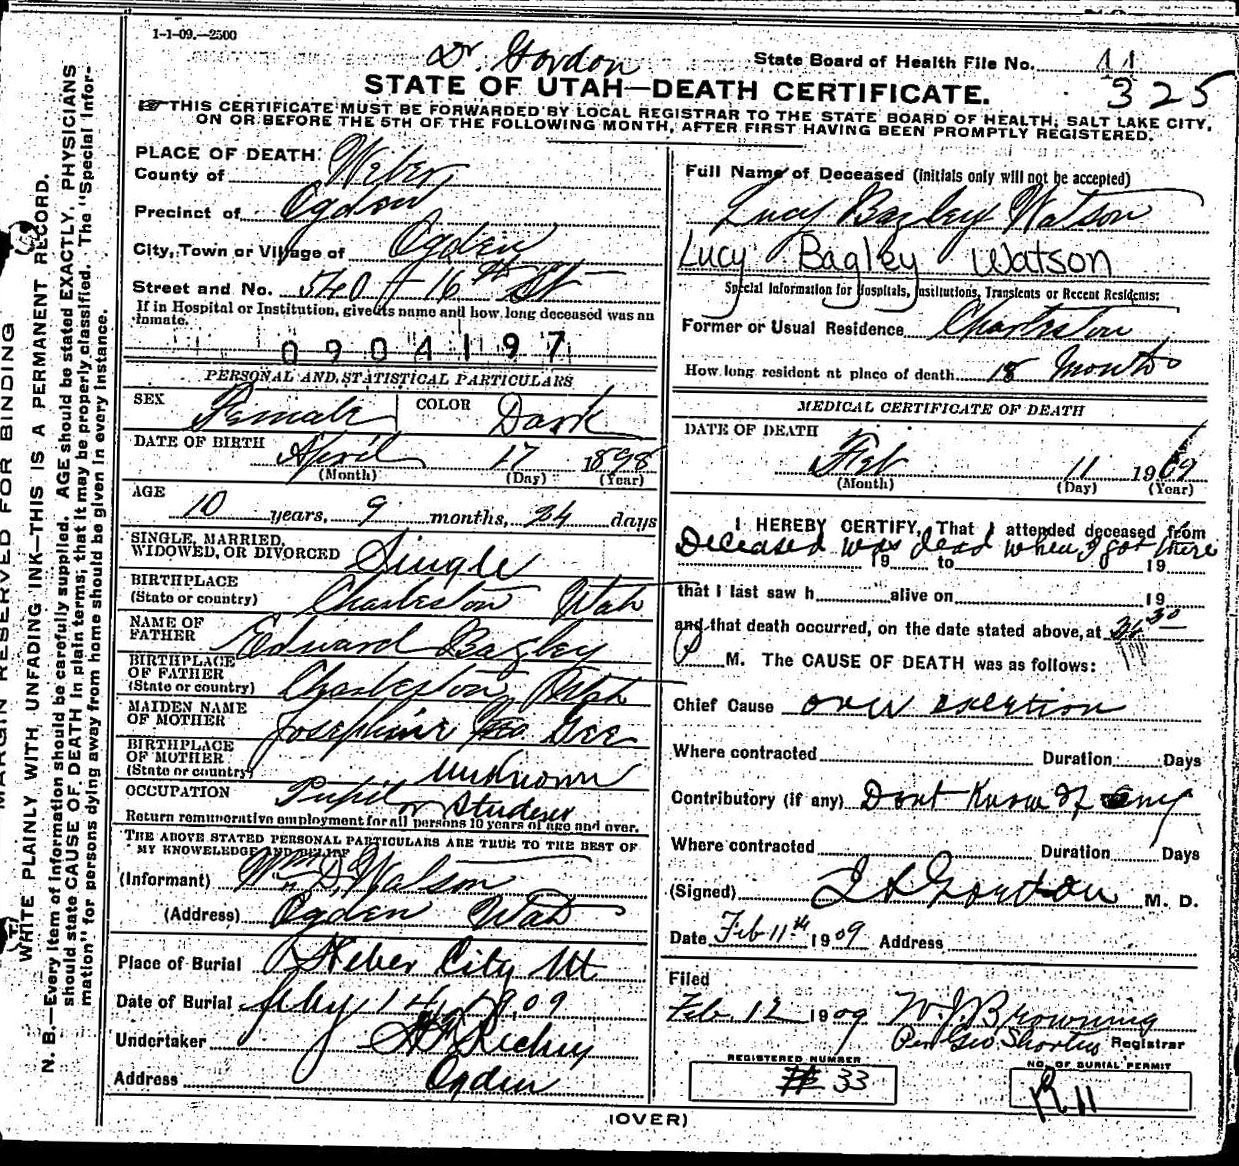 1-1-09.—2500
Dr Gordon
State Board of Health File No. 11
325
STATE OF UTAH—DEATH CERTIFICATE.
THIS CERTIFICATE MUST BE FORWARDED BY LOCAL REGISTRAR TO THE STATE BOARD OF HEALTH, SALT LAKE CITY,
ON OR BEFORE THE 5TH OF THE FOLLOWING MONTH, AFTER FIRST HAVING BEEN PROMPTLY REGISTERED.
MARGIN RESERVED FOR BINDING
WRITE PLAINLY WITH UNFADING INK—THIS IS A PERMANENT RECORD.
N. B.—Every item of information should be carefully supplied. AGE should be stated EXACTLY. PHYSICIANS
should state CAUSE OF DEATH in plain terms, that it may be properly classified. The "Special Infor-
mation" for persons dying away from home should be given in every instance.
PLACE OF DEATH:
County of Weber
Precinct of Ogden
City, Town or Village of Ogden
Street and No. 540 16th St
If in Hospital or Institution, give its name and how long deceased was an
inmate.
0904197
PERSONAL AND STATISTICAL PARTICULARS
SEX Female COLOR Dark
DATE OF BIRTH April 17 1898
(Month) (Day) (Year)
AGE
10 years, 9 months, 24 days
SINGLE, MARRIED,
WIDOWED, OR DIVORCED Single
BIRTHPLACE
(State or country) Charleston Utah
NAME OF
FATHER Edward Bagley
BIRTHPLACE
OF FATHER
(State or country) Charleston, Utah
MAIDEN NAME
OF MOTHER Josephine Gee
BIRTHPLACE
OF MOTHER
(State or country) unknown
OCCUPATION Pupil or Student
Return remunerative employment for all persons 10 years of age and over.
THE ABOVE STATED PERSONAL PARTICULARS ARE TRUE TO THE BEST OF
MY KNOWELEDGE AND BELIEF
(Informant) Wm D. Watson
(Address) Ogden Utah
Place of Burial Heber City Ut
Date of Burial Feby 14, 1909
Undertaker
Address Ogden
Full Name of Deceased (initials only will not be accepted)
Lucy Bagley Watson
Lucy Bagley Watson
Special Information for Hospitals, Institutions, Transients or Recent Residents:
Former or Usual Residence Charleston
How long resident at place of death 18 Months
MEDICAL CERTIFICATE OF DEATH
DATE OF DEATH
Feb 11 1909
(Month) (Day) (Year)
I HEREBY CERTIFY, That I attended deceased from
Deceased was dead when I got there
19 to 19
that I last saw h alive on 19
and that death occurred, on the date stated above, at
P M. The CAUSE OF DEATH was as follows:
Chief Cause over exertion
Where contracted Duration Days
Contributory (if any) Dont Know of any
Where contracted Duration Days
(Signed) Gordon M. D.
Date Feb 11th 1909 Address
Filed
Feb. 12 1909 W. J. Browning
Per Geo Shorten Registrar
REGISTERED NUMBER
# 33
NO. OF BURIAL PERMIT
R 11
(OVER)